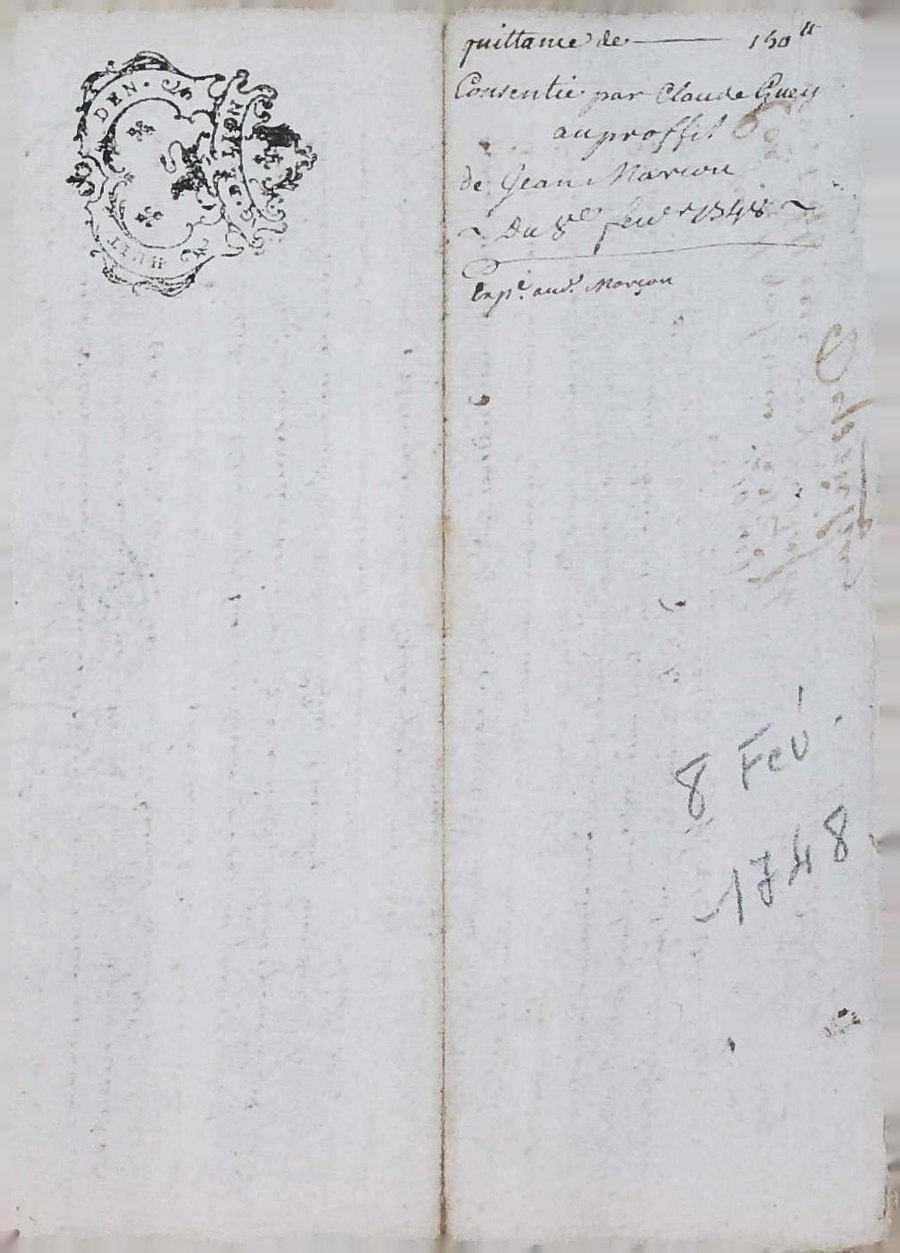 HUIT
DEN.
G. DE LION
quittance de 150ᵗᵗ
Consentie par Claude Guey
au proffit
de Jean Marcou
~ Du 8ᵉ fevʳ 1748 ~
Expᵉ. aud. Marçou
8 Fév.
1748